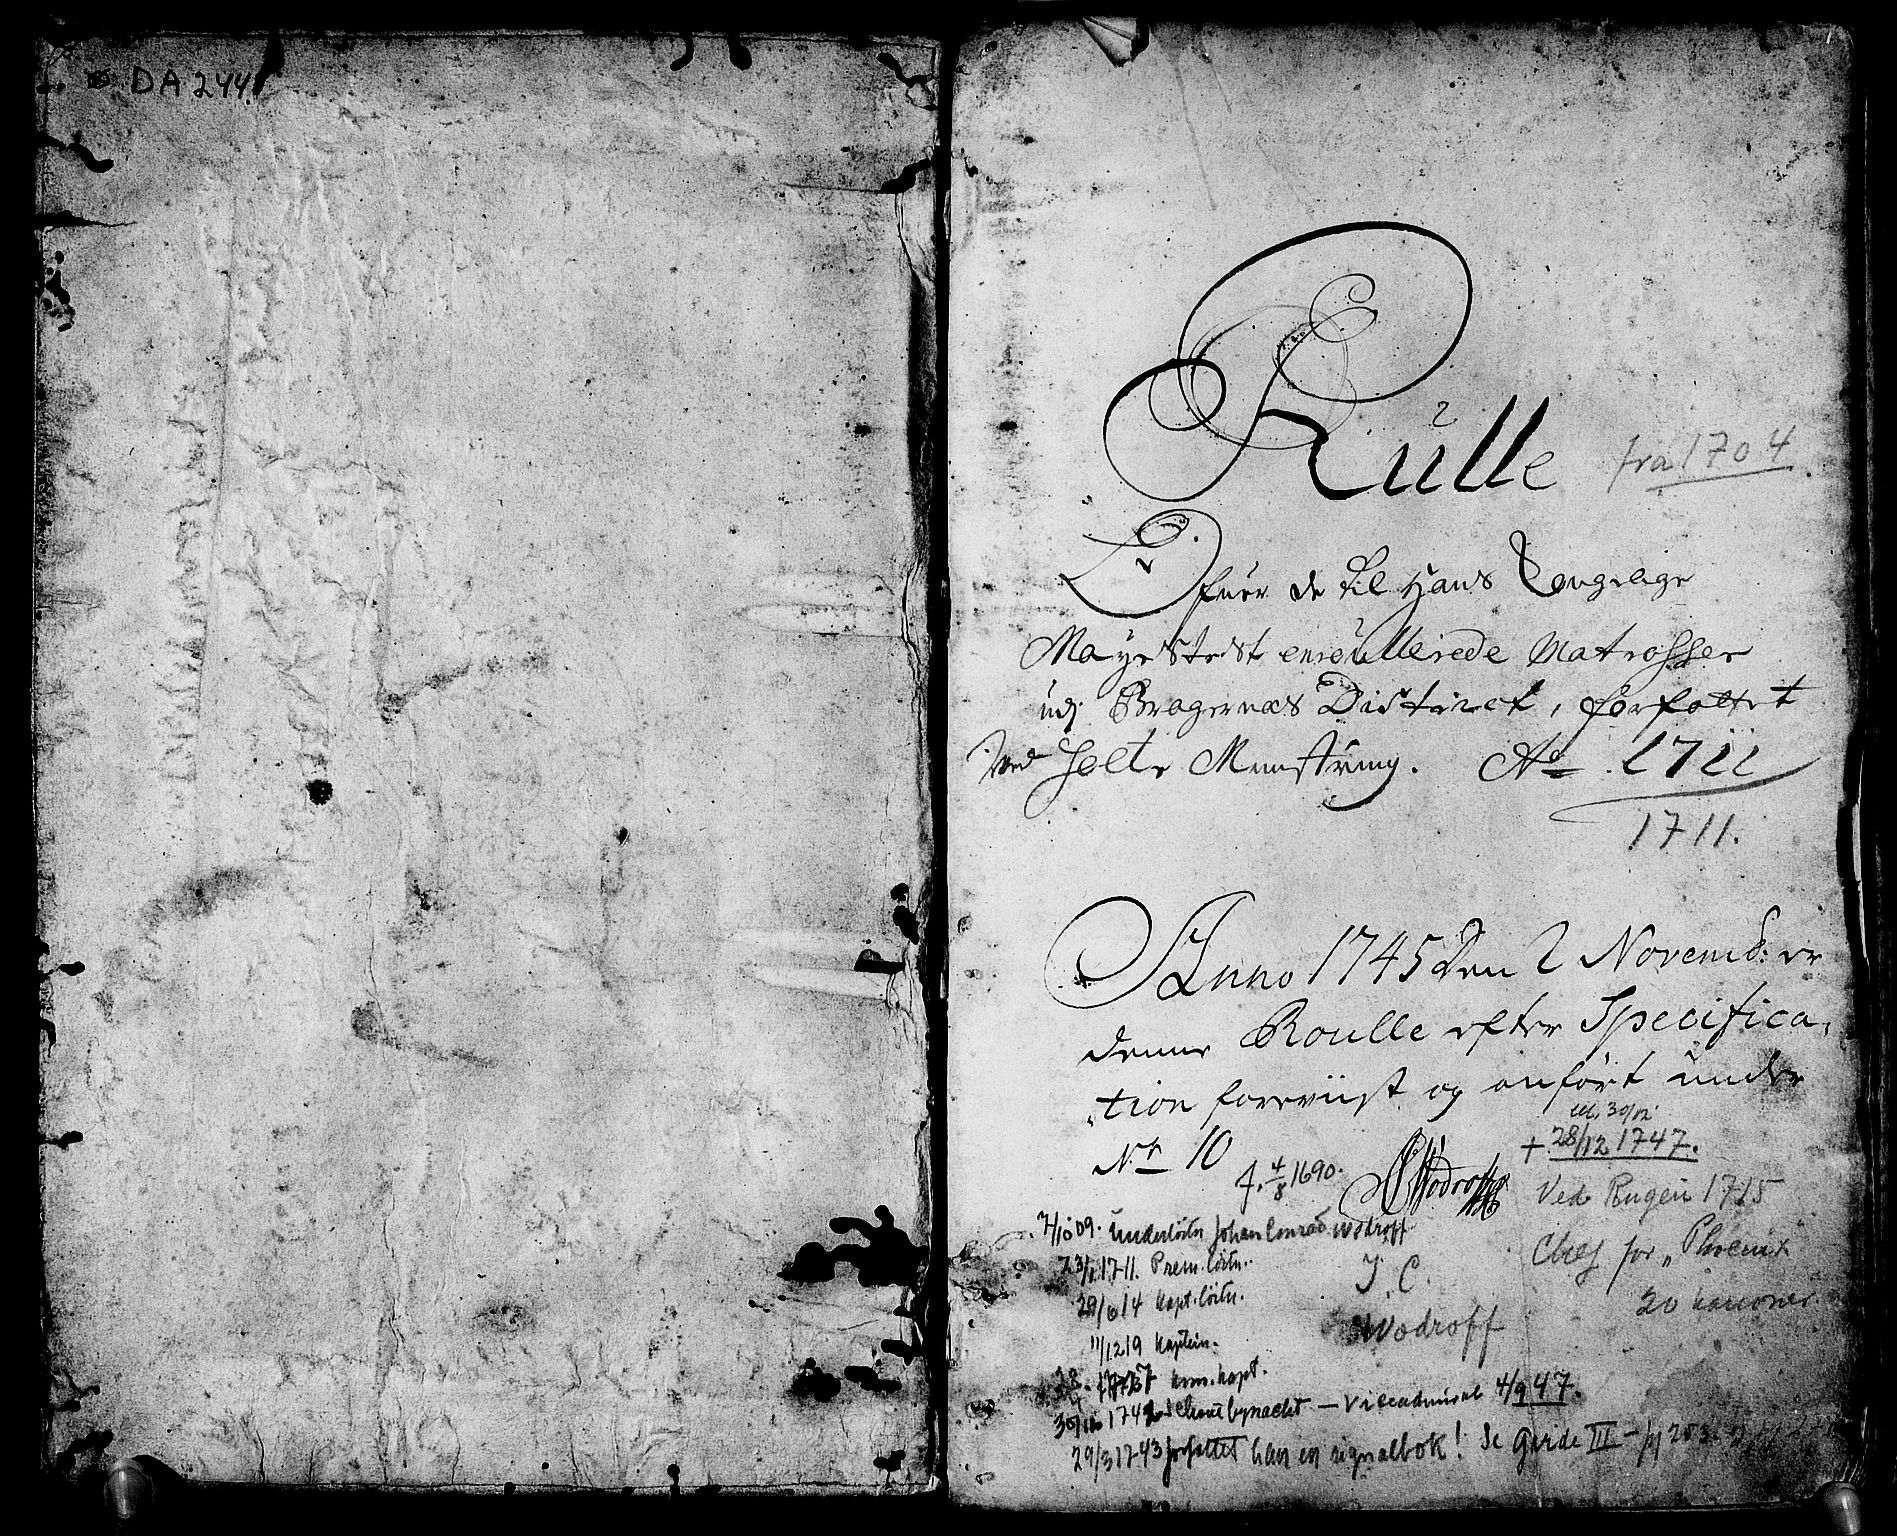 DA 244
Rulle fra 1704
Ofuer de til Hans Kongelige
Mayestedt enroullerede Matrosser
udj Bragernæs District, forfattet
Ved Holte Mynstring. Ao 1711
1711.
Anno 1745 Den 2 Novemb: er
denne Roulle efter Specifica-
tion foreviist og anført under
No 10
CWodroff
f. 4/8 1690.
+ 28/12 1747.
Ved Rugen 1715
Chef for "Phoenix
20 kanoner
7/10 09. Underløitn Johan Conrad Wodroff
23/1 1711. Prem. løitn.
29/6 14 Kapt. løitn.
J. C.
Wodroff
11/12 19 Kaptein.
kom. kapt.
30/10 1742 Schoutbynacht - Viceadmiral 4/9 47.
29/3 1743 forfattet han en signalbok! Se Garde III -